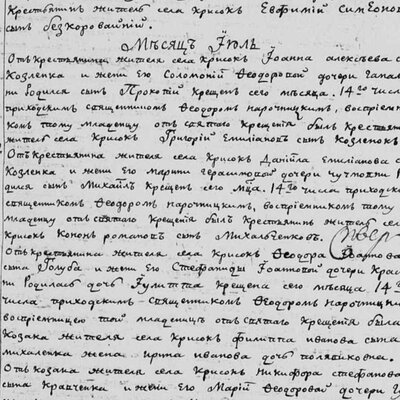 Крестьянин житель села Крисок Евфимий Симеонов
сын Безкоровайний.
Мѣсяц Июль
От Крестьянина жителя села Крисок Иоанна Алексѣева с
Козленка и жени Его Соломонӣ Феодоровой дочери
ни родился сын Прокопий Крещен сего мѣсяца 14го числа
приходским священником Феодором нарочницким, воспріем
ком тому младенцу от святаго Крещения был Крестьян
житель села Крисок Григорий Емилианов сын Козленок
От Крестьянина жителя села Крисок Даниила Емилианова с
Козленка и жени Его Марти Герасимовой дочери
дился сын Михаил Крещен сего мца 14го числа приход
священником Феодором нарочницким, воспріемником тому
младенцу от святаго Крещения был Крестьянин житель се
Крисок Конон романов сын Михальченков.
От Крестьянина жителя села Крисок Феодора
сына Голуба и жени Его Стефаниды Іоанновой дочери
ни родилась дочь Іулитта Крещена сего мѣсяца 14
числа приходским священником Феодором нарочницки
воспріемницею той младенци от святаго Крещения была
Козака жителя села Крисок Филиппа иванова сына
михаленка жена ирина иванова дочь
От Козака жителя села Крисок Никифора стефанова
сына Кравченка и жени Его Марии Феодоровой дочери